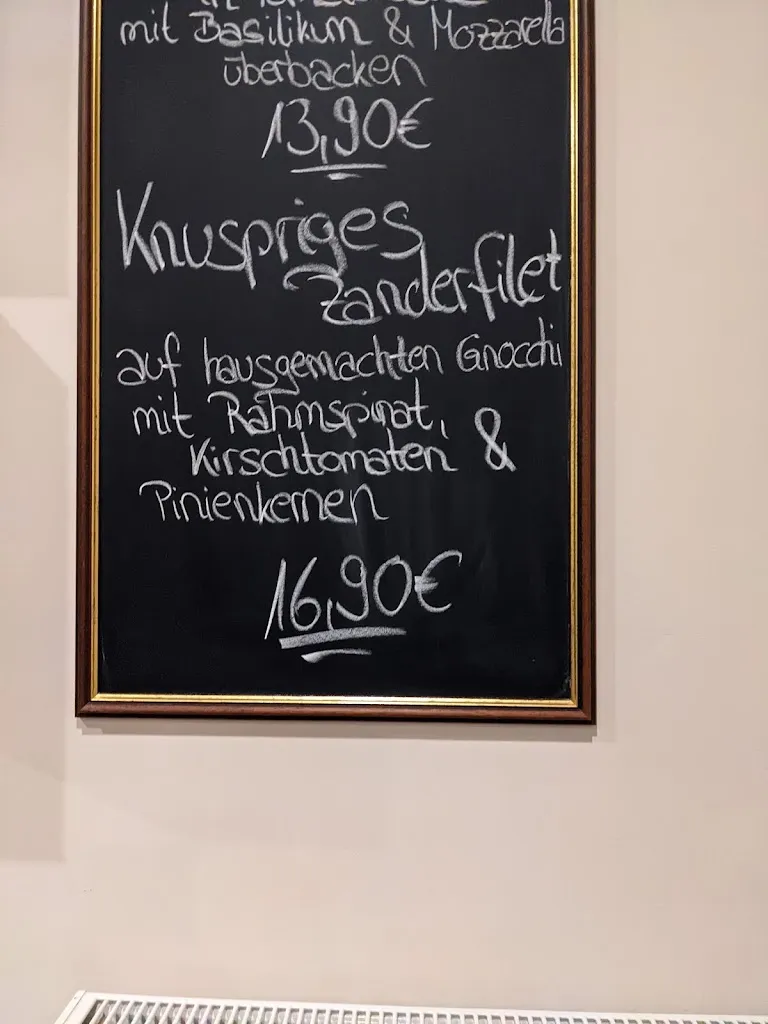 mit Basilikum & Mozzarella
überbacken
13,90€
Knuspriges
Zanderfilet
auf hausgemachten Gnocchi
mit Rahmspinat,
Kirschtomaten &
Pinienkernen
16,90€